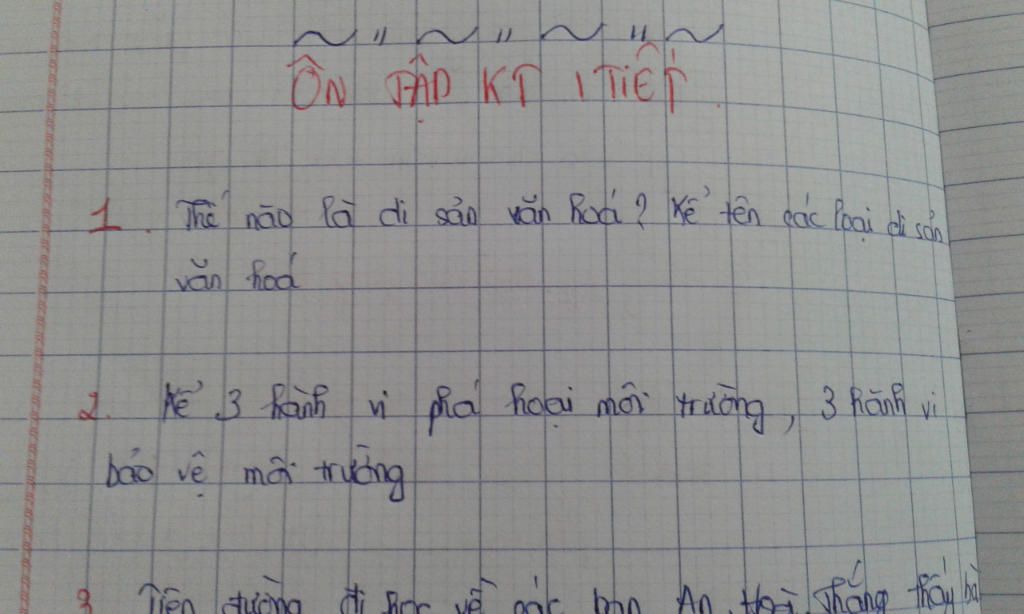 ÔN TẬP KT 1 TIẾT
1. Thế nào là di sản văn hoá? Kể tên các loại di sản
văn hoá
2. Kể 3 hành vi phá hoại môi trường, 3 hành vi
bảo vệ môi trường
3 Trên đường đi học về các bạn An, Hoà, Thắng thấy bà